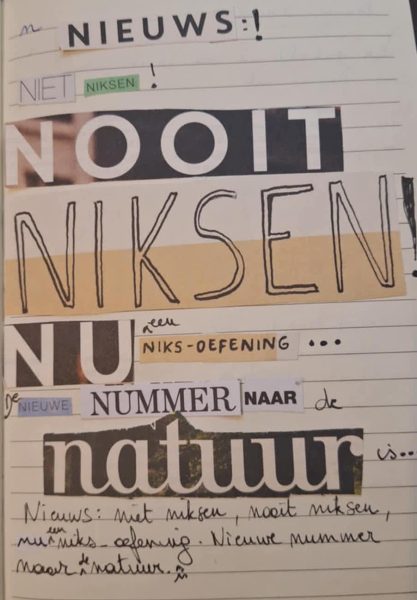 n NIEUWS:!
NIET NIKSEN !
NOOIT
NIKSEN!
NU een NIKS-OEFENING ...
De NIEUWE NUMMER NAAR de
natuur is...
Nieuws: niet niksen, nooit niksen,
nu een niks-oefening. Nieuwe nummer
naar de natuur.